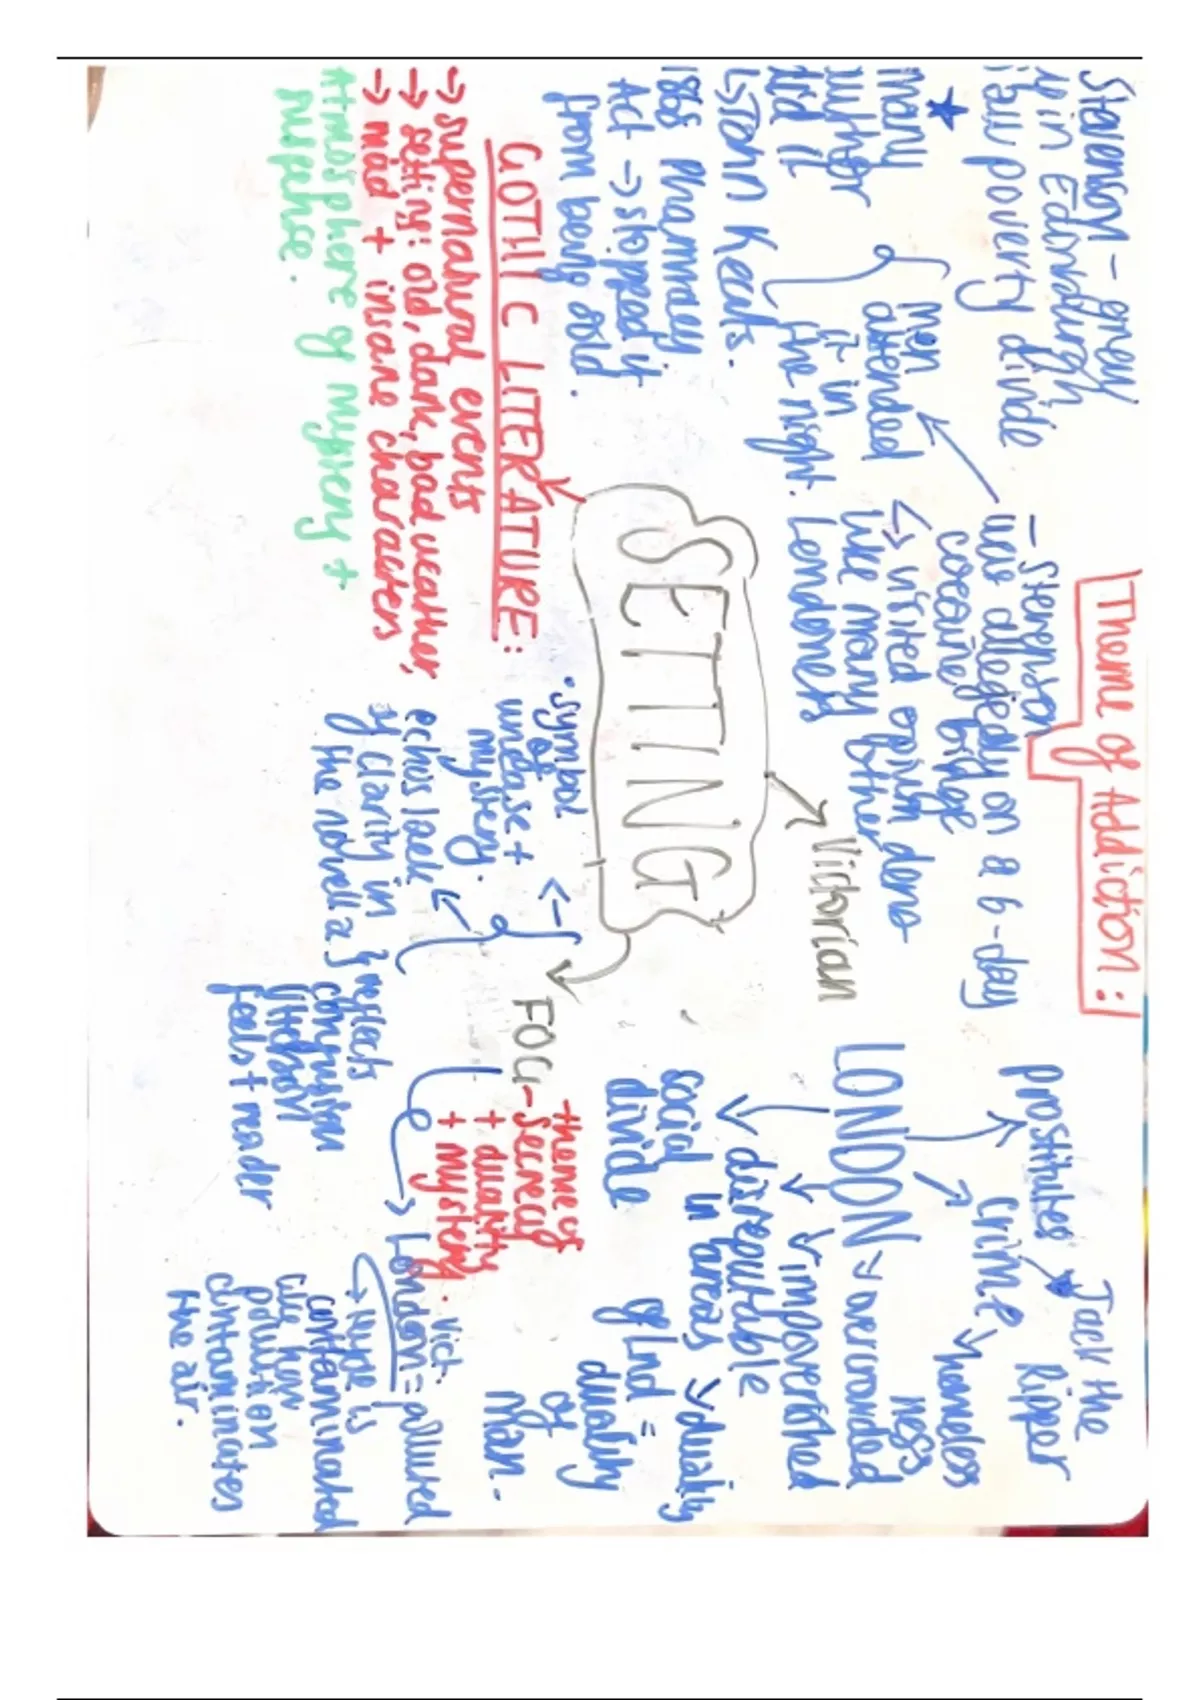 Theme of Addiction:
Stevenson - grew
up in Edinburgh
saw poverty divide
- Stevenson
was allegedly on a 6-day
cocaine binge
↳ visited opium dens
like many other
Londoners
men
attended
it in
the night.
★
many
author
did it
↳ John Keats.
1868 Pharmacy
Act → stopped it
from being sold.
SETTING
Victorian
LONDON
prostitutes
Jack the
Ripper
crime
homeless
ness
overcrowded
impoverished
disreputable
social in areas
divide
duality
of Lnd =
duality
of
Man.
GOTHIC LITERATURE:
→ supernatural events
→ setting: old, dark, bad weather,
→ mad + insane characters
Atmosphere of mystery +
suspense.
FOG -
theme of
secrecy
+ duality
+ mystery.
• symbol
of
unease +
mystery.
echos lack
of clarity in
the novella
reflects
confusion
Utterson
feels + reader
Vict.
London = polluted
↳ Hyde is
contaminated
like how
pollution
contaminates
the air.